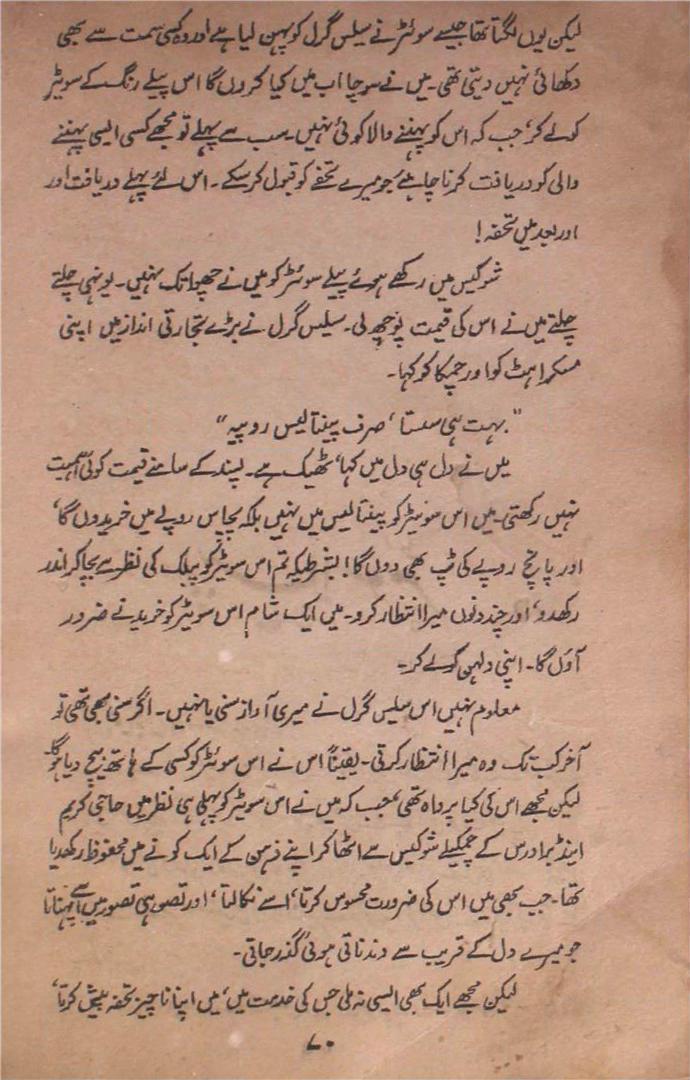 لیکن یوں لگتا تھا جیسے سوئٹر نے سیلس گرل کو پہن لیا ہے اور وہ کسی سمت سے بھی
دکھائی نہیں دیتی تھی۔ میں نے سوچا اب میں کیا کروں گا اس پیلے رنگ کے سویٹر
کو لے کر، جب کہ اس کو پہننے والا کوئی نہیں۔ سب سے پہلے تو مجھے کسی ایسی پہننے
والی کو دریافت کرنا چاہئے جو میرے تحفے کو قبول کر سکے۔ اس لئے پہلے دریافت اور
اور بعد میں تحفہ!
شوکیس میں رکھے ہوئے پیلے سوئٹر کو میں نے چھوا تک نہیں۔ یونہی چلتے
چلتے میں نے اس کی قیمت پوچھ لی۔ سیلس گرل نے بڑے تجارتی انداز میں اپنی
مسکراہٹ کو اور چمکا کو کہا۔
"بہت ہی سستا، صرف پینتالیس روپیہ"
میں نے دل ہی دل میں کہا، ٹھیک ہے۔ پسند کے سامنے قیمت کوئی اہمیت
نہیں رکھتی۔ میں اس سوئیٹر کو پینتالیس میں نہیں بلکہ پچاس روپے میں خریدوں گا،
اور پانچ روپے کی ٹپ بھی دوں گا! بشرطیکہ تم اس سویٹر کو پبلک کی نظر سے بچا کر اندر
رکھدو، اور چند دنوں میرا انتظار کرو۔ میں ایک شام اس سویٹر کو خریدنے ضرور
آؤں گا۔ اپنی دلہن کو لے کر۔
معلوم نہیں اس سیلس گرل نے میری آواز سنی یا نہیں۔ اگر سنی بھی تھی تو
آخر کب تک وہ میرا انتظار کرتی۔ یقیناً اس نے اس سوئٹر کو کسی کے ہاتھ بیچ دیا ہوگا۔
لیکن مجھے اس کی کیا پرواہ تھی، جب کہ میں نے اس سویٹر کو پہلی ہی نظر میں حاجی کریم
اینڈ برادرس کے چمکیلے شوکیس سے اٹھا کر اپنے ذہن کے ایک کونے میں محفوظ رکھدیا
تھا۔ جب بھی میں اس کی ضرورت محسوس کرتا، اسے نکالتا، اور تصور ہی تصور میں اسے پہناتا
جو میرے دل کے قریب سے دندناتی ہوئی گذر جاتی۔
لیکن مجھے ایک بھی ایسی نہ ملی جس کی خدمت میں، میں اپنا ناچیز تحفہ پیش کرتا،
۷۰